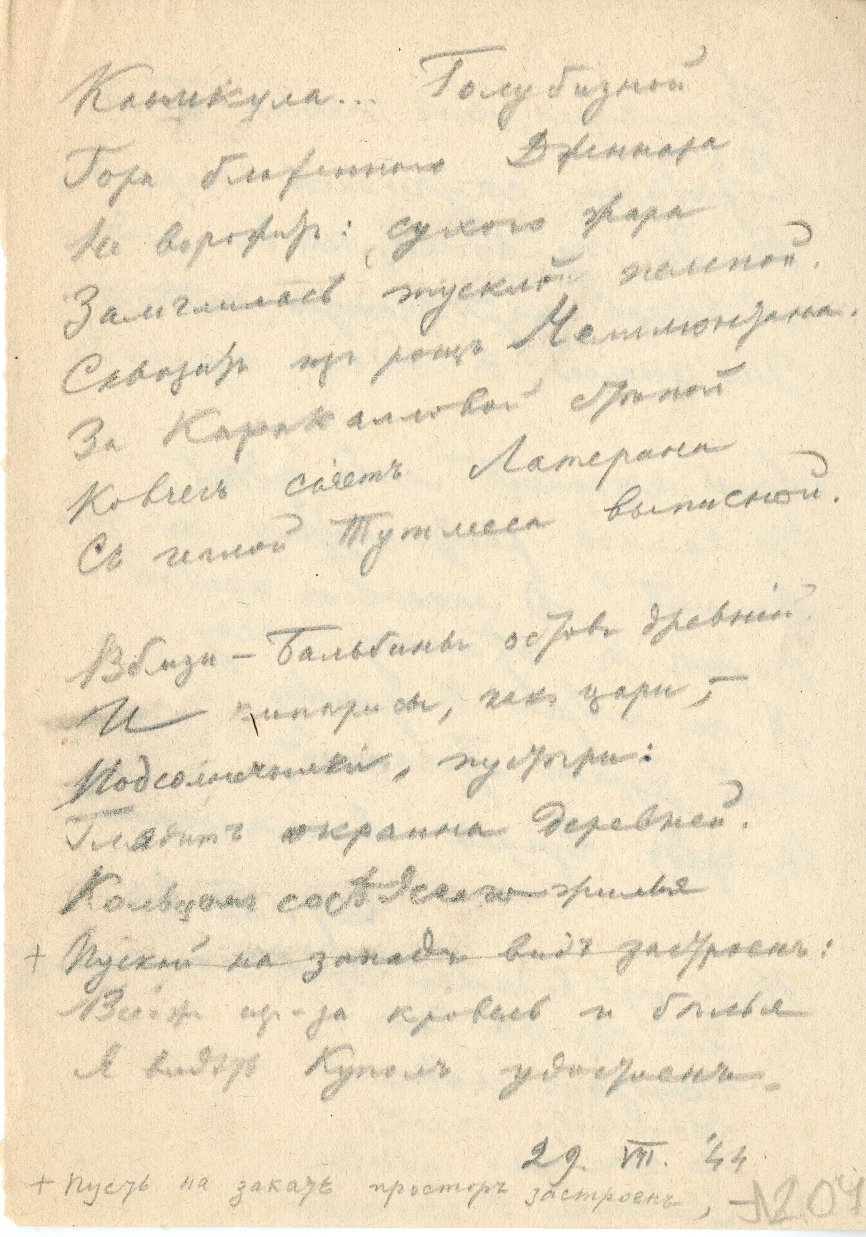 Каникула... Голубизной
Гора блаженного Дженнара
Не ворожит: сухого жара
Замглилась тусклой пеленой.
Сквозит из рощ Челимонтана.
За Каракалловой стѣной
Ковчегъ сіяетъ Латерана
Съ иглой Тутмеса выписной.
Вблизи – Бальбины остов древній
И кипарисы, как цари, –
Подсолнечники, пустыри:
Глядитъ окраина деревней.
Кольцомъ сосѣдскаго жилья
+ Пускай на западъ видъ застроенъ:
Все ж из-за кровель и бѣлья
Я видѣть Куполъ удостоенъ.
29. VII. '44
+ Пусть на закатъ просторъ застроенъ,